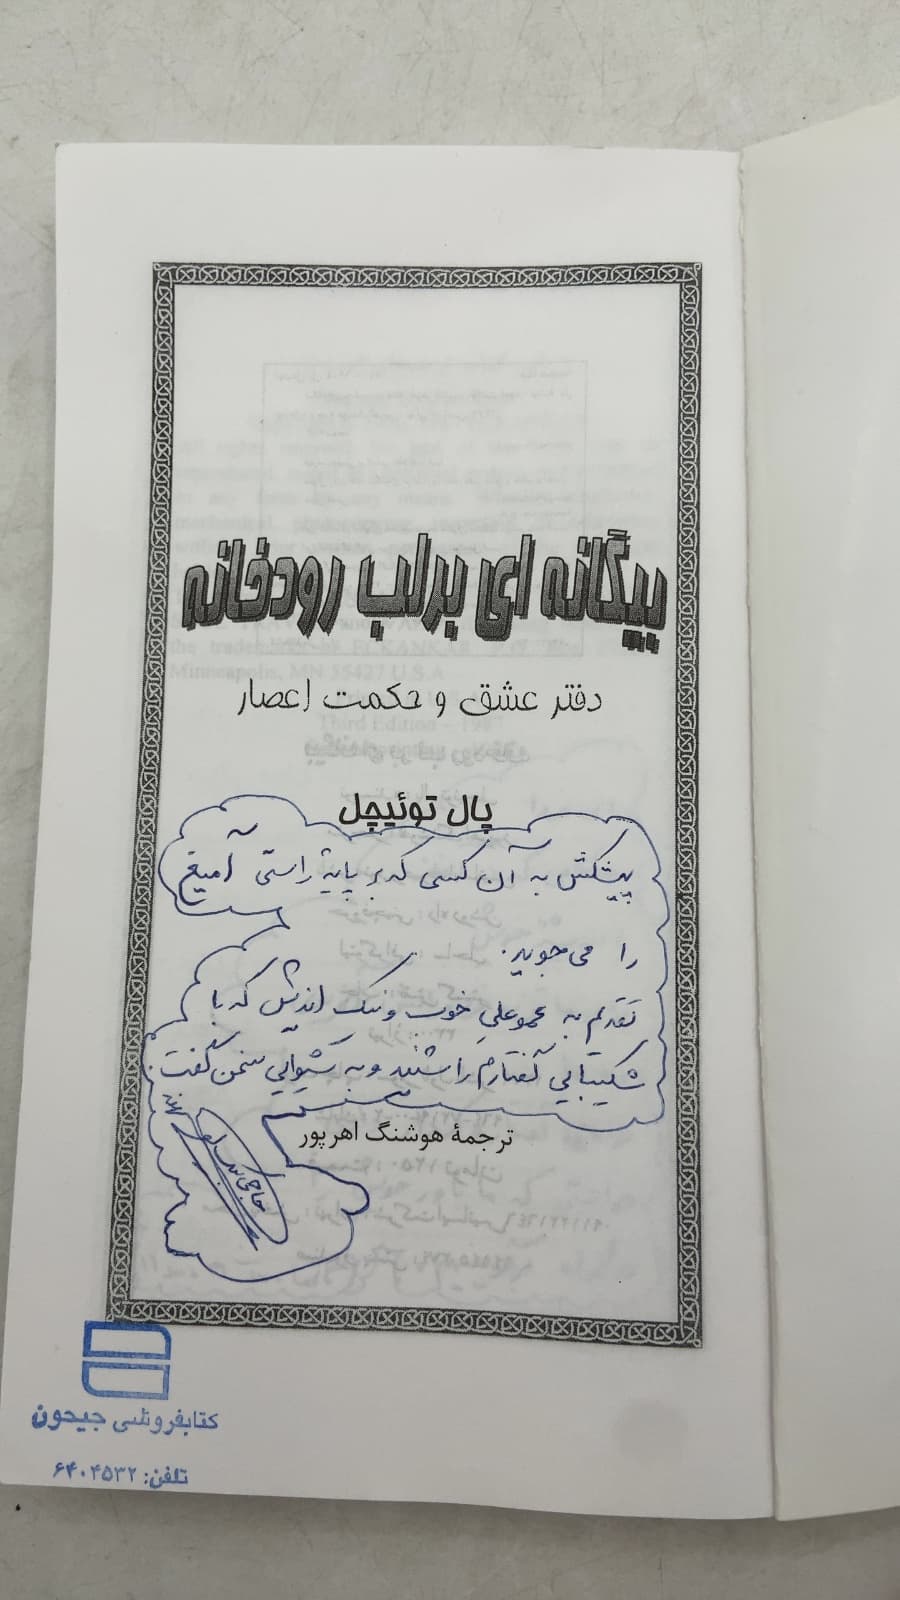 بیگانه ای برلب رودخانه
دفتر عشق و حکمت اعصار
پال توئیچل
پیشکش به آن کسی که بر پایهٔ راستی آمیغ
را می‌جوید.
تقدیم به عموعلی خوب و نیک اندیش که با
شکیبایی گفتارم را شنید و به شیوایی سخن گفت.
ترجمهٔ هوشنگ اهرپور
کتابفروشی جیحون
تلفن: ۶۴۰۴۵۳۲